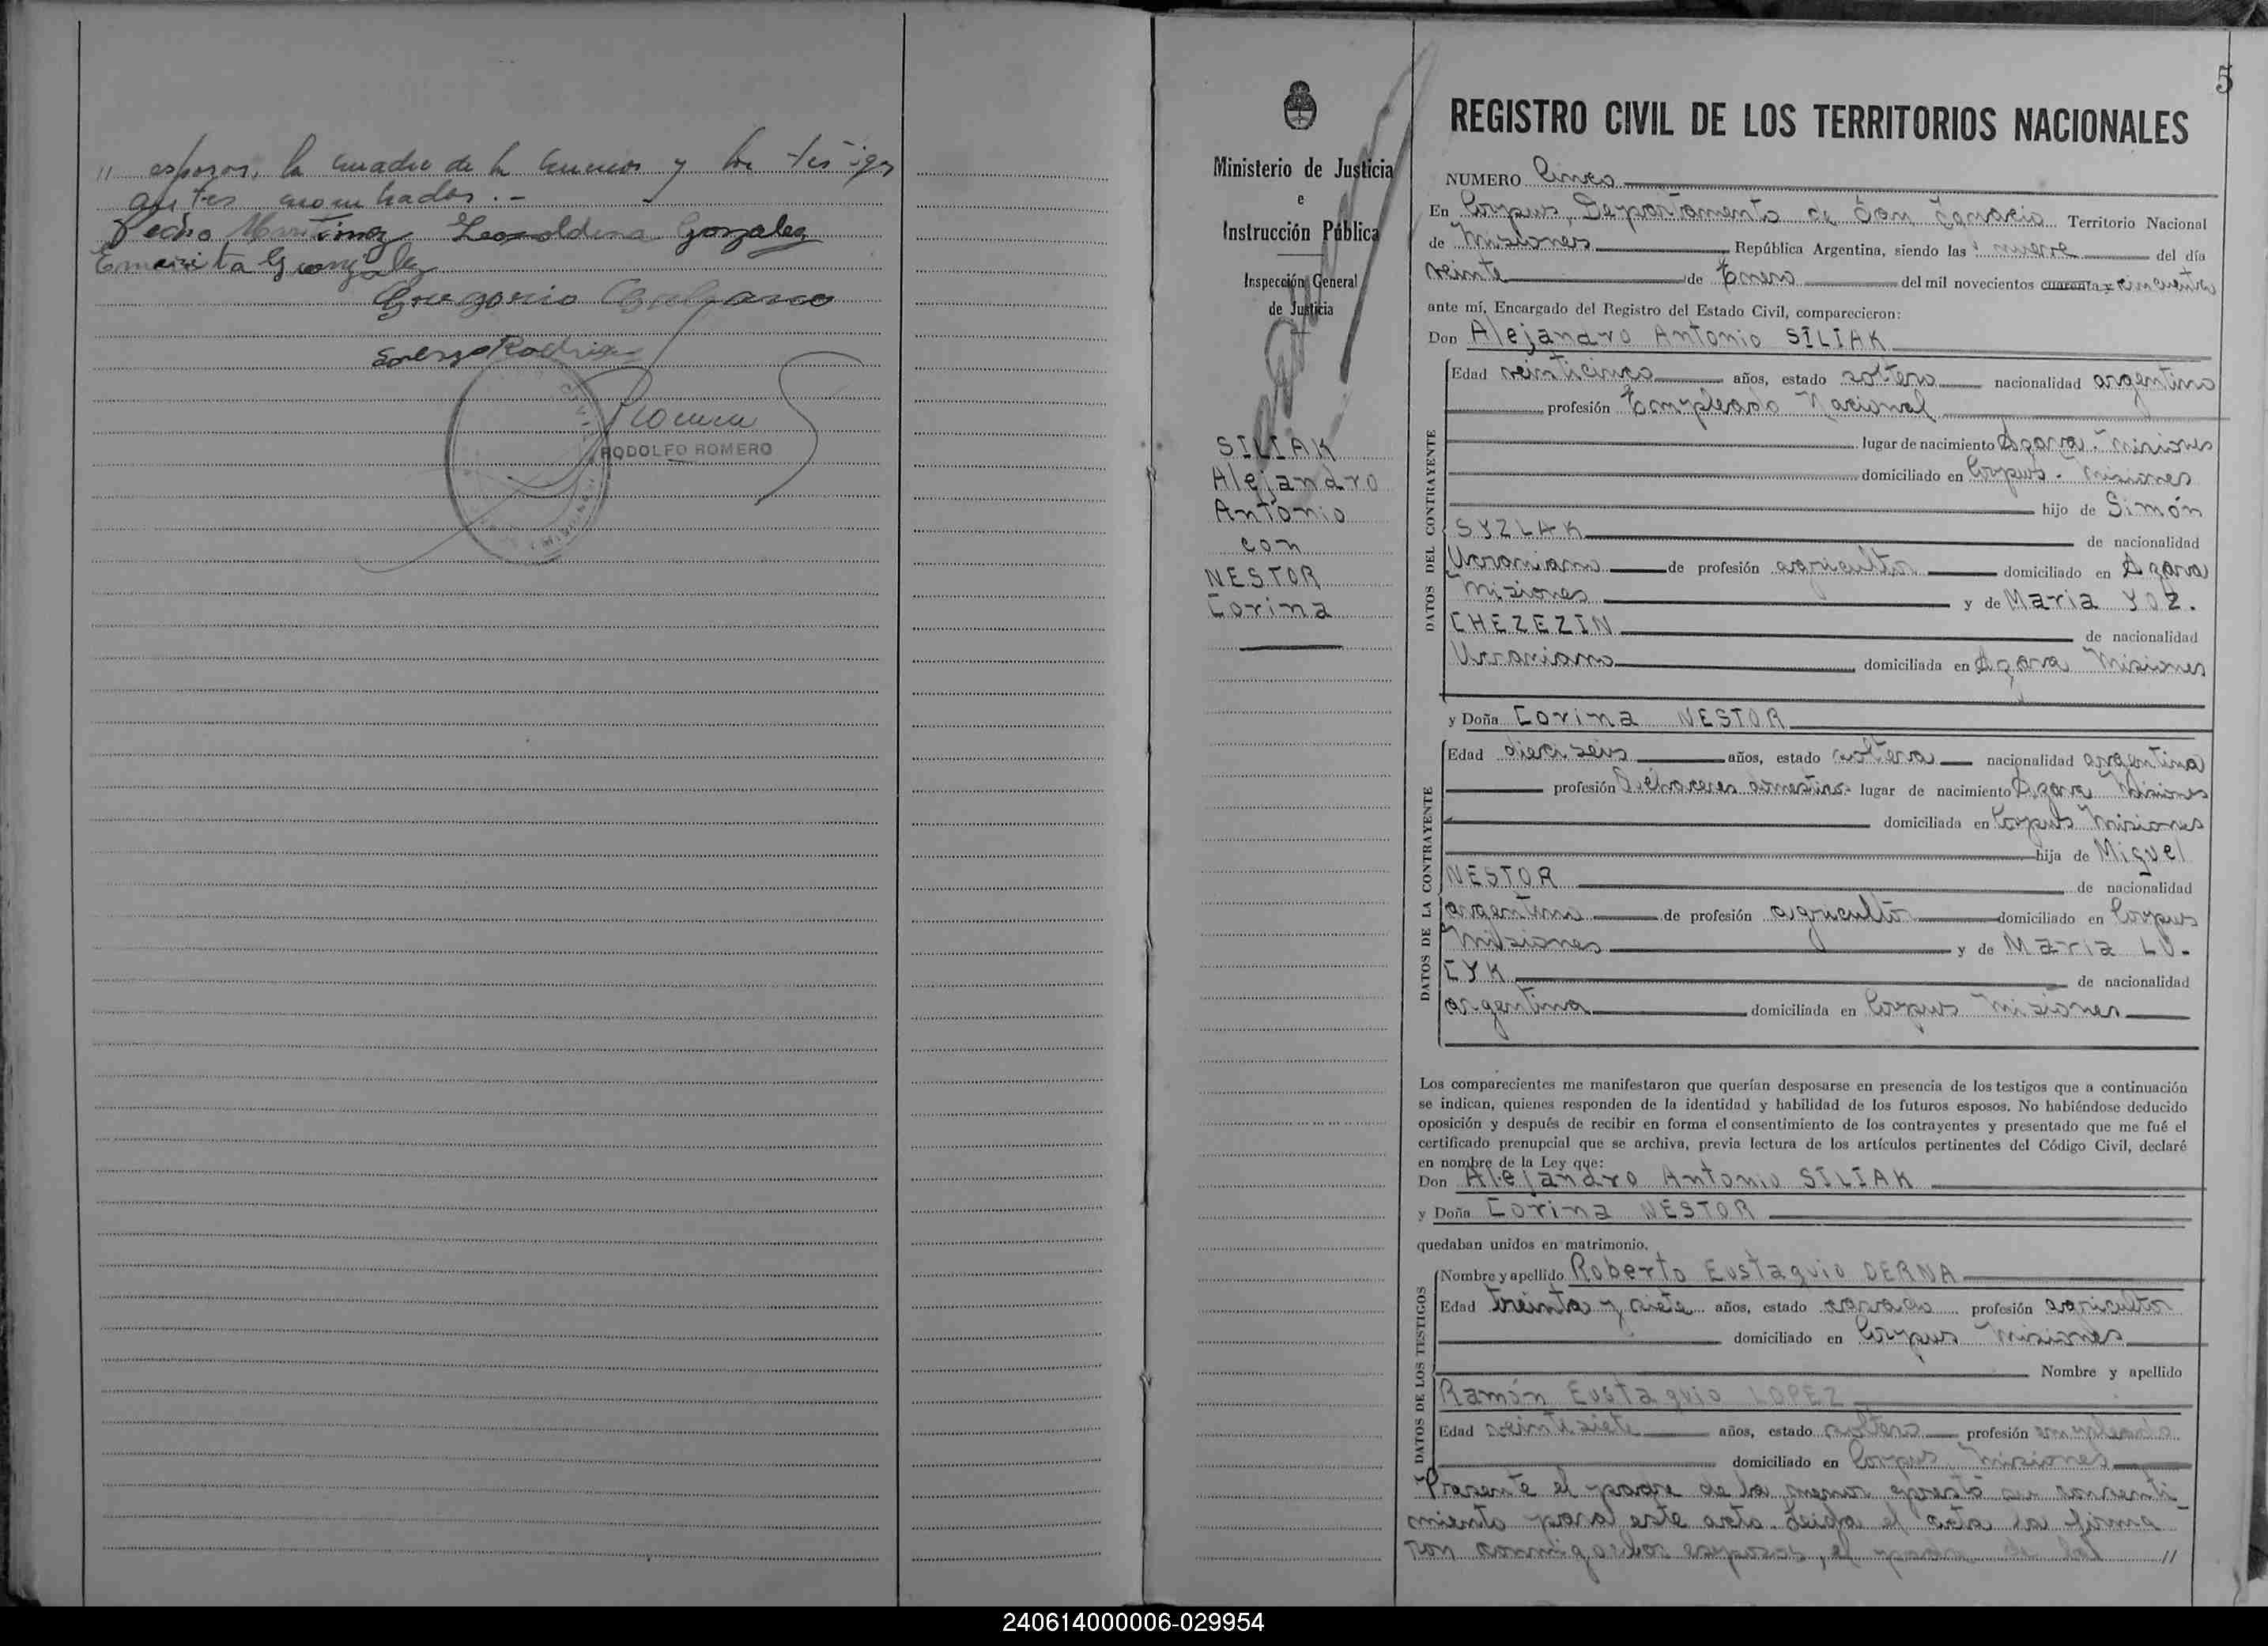 " esposos, la madre de la menor y los testigos
antes nombrados.-
Pedro Martinez Leopoldina Gonzalez
Emerita Gonzalez
Gregorio
Lorenzo Rodrig
Romero
RODOLFO ROMERO
Ministerio de Justicia
e
Instrucción Pública
Inspección General
de Justicia
SILIAK
Alejandro
Antonio
con
NESTOR
Corina
5
REGISTRO CIVIL DE LOS TERRITORIOS NACIONALES
NUMERO Cinco
En Corpus, Departamento de San Ignacio Territorio Nacional
de Misiones República Argentina, siendo las nueve del día
veinte de Enero del mil novecientos cuarenta y cincuenta
ante mí, Encargado del Registro del Estado Civil, comparecieron:
Don Alejandro Antonio SILIAK
DATOS DEL CONTRAYENTE
Edad veinticinco años, estado soltero nacionalidad argentino
profesión Empleado Nacional
lugar de nacimiento Azara - Misiones
domiciliado en Corpus - Misiones
hijo de Simón
SYZLAK de nacionalidad
Ucraniano de profesión agricultor domiciliado en Azara
Misiones y de María YOZ.
CHEZEZIN de nacionalidad
Ucraniano domiciliada en Azara Misiones
y Doña Corina NESTOR
DATOS DE LA CONTRAYENTE
Edad dieciseis años, estado soltera nacionalidad argentina
profesión Quehaceres domésticos lugar de nacimiento Azara Misiones
domiciliada en Corpus Misiones
hija de Miguel
NESTOR de nacionalidad
argentino de profesión agricultor domiciliado en Corpus
Misiones y de María LU-
CYK de nacionalidad
argentina domiciliada en Corpus Misiones
Los comparecientes me manifestaron que querían desposarse en presencia de los testigos que a continuación
se indican, quienes responden de la identidad y habilidad de los futuros esposos. No habiéndose deducido
oposición y después de recibir en forma el consentimiento de los contrayentes y presentado que me fué el
certificado prenupcial que se archiva, previa lectura de los artículos pertinentes del Código Civil, declaré
en nombre de la Ley que:
Don Alejandro Antonio SILIAK
y Doña Corina NESTOR
quedaban unidos en matrimonio.
DATOS DE LOS TESTIGOS
Nombre y apellido Roberto Eustaquio DERNA
Edad treinta y siete años, estado casado profesión agricultor
domiciliado en Corpus Misiones
Nombre y apellido
Ramón Eustaquio LOPEZ
Edad veintisiete años, estado soltero profesión empleado
domiciliado en Corpus Misiones
Presente el padre de la menor prestó su consenti-
miento para este acto. Leída el acta la firma
ron conmigo los esposos, el padre de la "
240614000006-029954